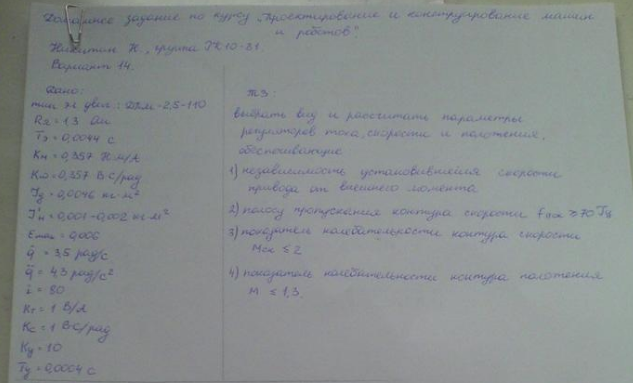 Домашнее задание по курсу „Проектирование и конструирование машин
и роботов".
Никитин Н., группа
Вариант 14.
Дано:
тип эл двиг.: ДПМ-2,5-110
Rя = 1.3 Ом
Tэ = 0,0044 с
Kм = 0,357 Н·м/А
Kω = 0,357 В·с/рад
Jд = 0,0046 кг·м²
J'н = 0,001-0,002 кг·м²
= 0,006
q̇ = 3,5 рад/с
q̈ = 4,3 рад/с²
i = 80
Kт = 1 В/А
Kс = 1 В·С/рад
Kу = 10
Tу = 0,0004 с
ТЗ:
выбрать вид и рассчитать параметры
регуляторов тока, скорости и положения,
обеспечивающие
1) независимость установившейся скорости
привода от внешнего момента
2) полосу пропускания контура скорости ≥ 70 Гц
3) показатель колебательности контура скорости
Mск ≤ 2
4) показатель колебательности контура положения
M ≤ 1,3.